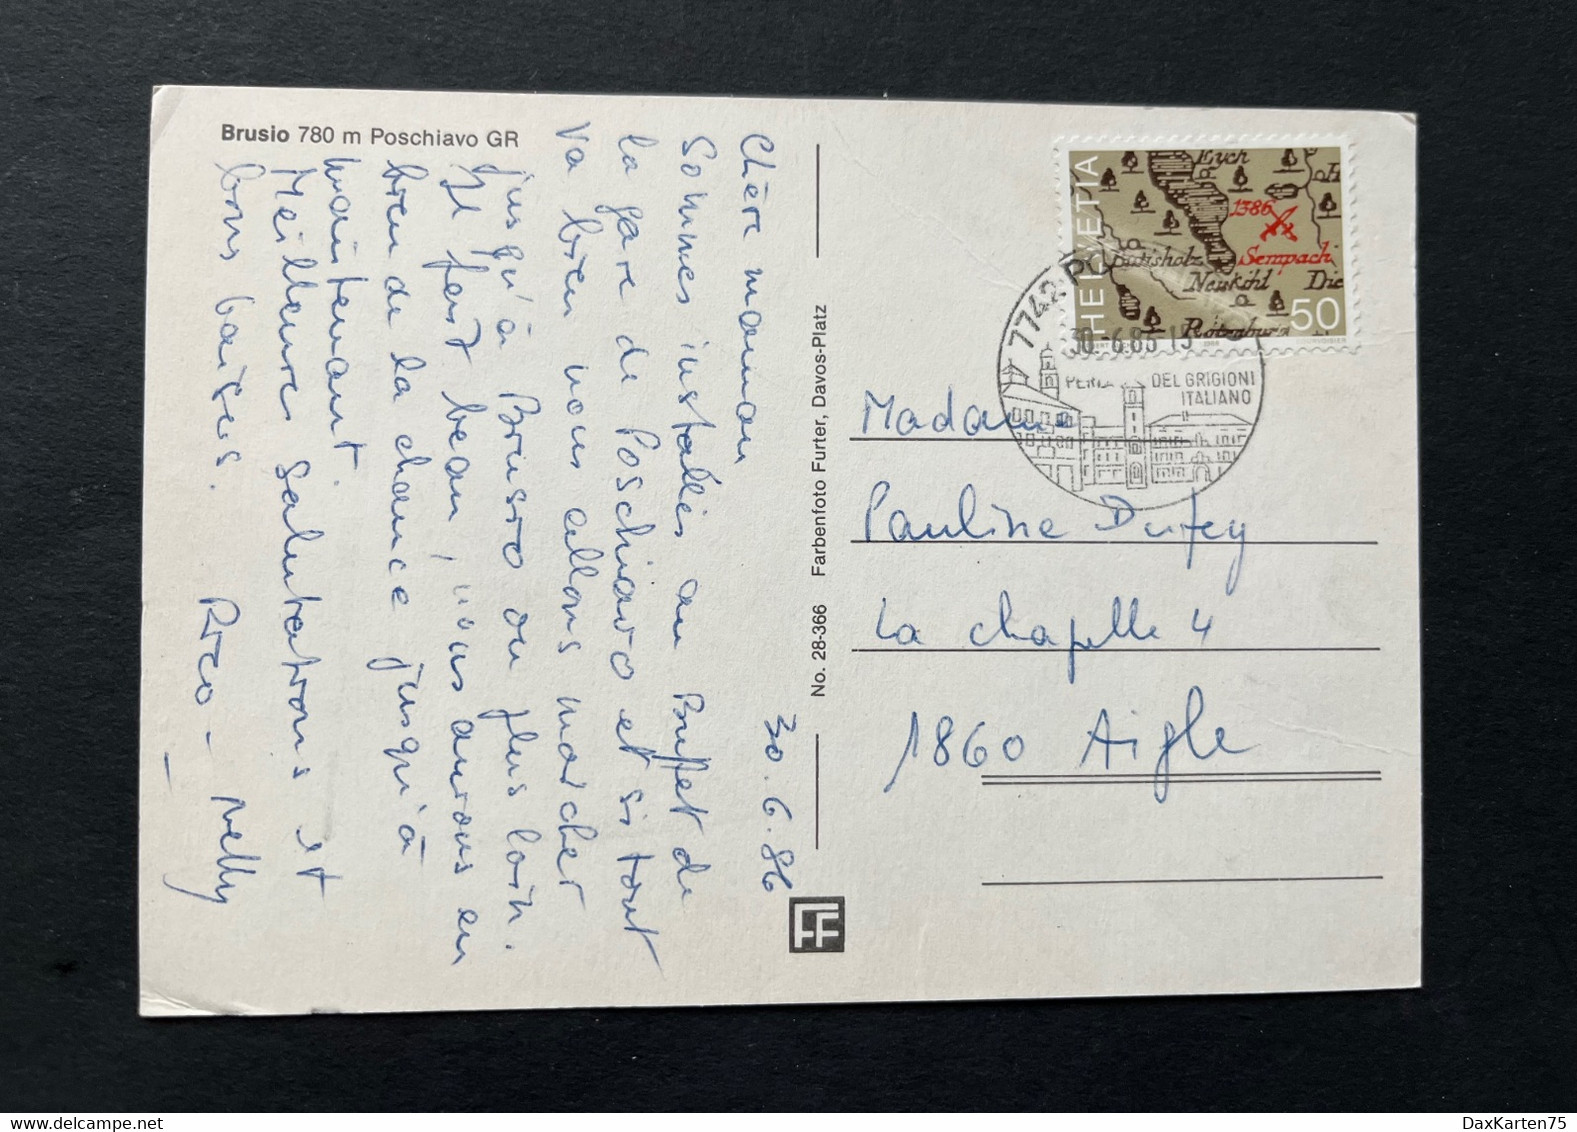 Brusio 780 m Poschiavo GR
30.6.86
Chère maman
Sommes installés au Buffet de
la gare de Poschiavo et si tout
va bien nous allons marcher
jusqu'à Brusio ou plus loin.
Il fait beau, nous aurons eu
bien de la chance jusqu'à
maintenant.
Meilleures salutations et
bons baisers. Rico - Nelly
No. 28-366 Farbenfoto Furter, Davos-Platz
FF
HELVETIA
Eych
1386
Sempach
Butisholz
Neukihl Die
Rotenburg
50
7742 PO
30.-6.86 15
PERLA DEL GRIGIONI
ITALIANO
Madame
Pauline Dufey
La chapelle 4
1860 Aigle
DaxKarten75